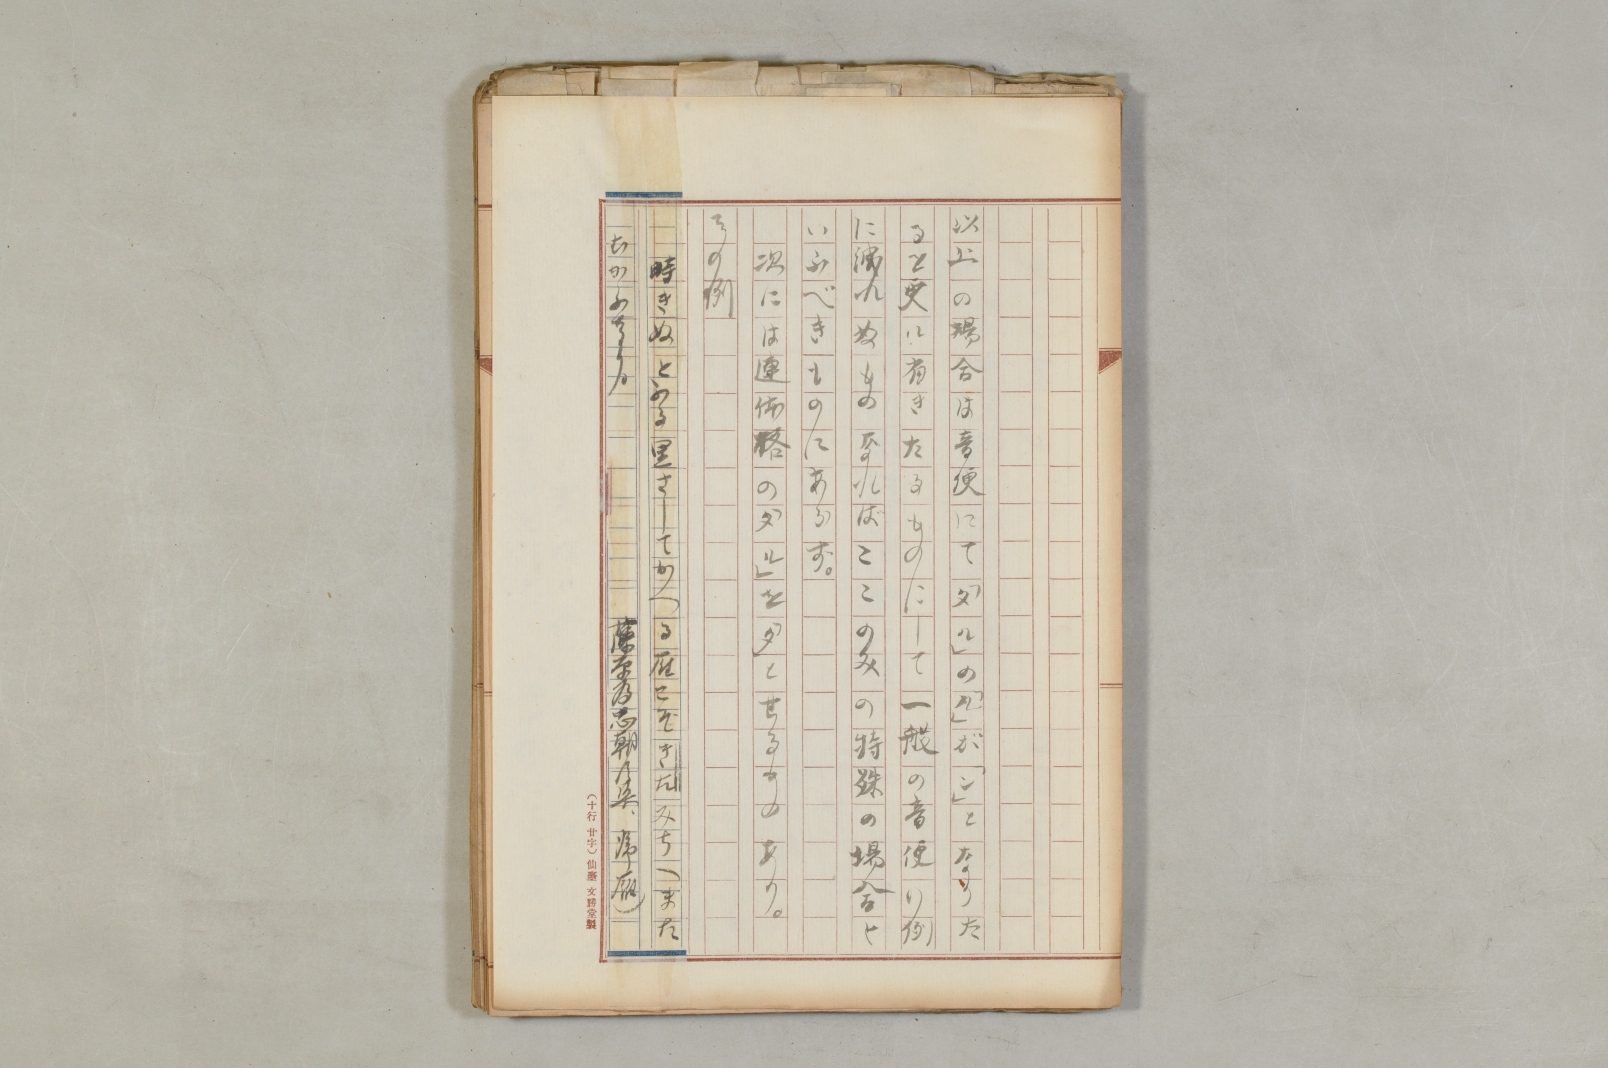 以上の場合は音便にて「タル」の「ル」が「ン」となりた
ると更に省きたるものにして一般の音便の例
に洩れぬものなればここのみの特殊の場合と
いふべきものにあらず。
次には連体格の「タル」を「タ」とせるものあり。
その例
時きぬとふる里さしてかへる雁こぞきたみちへまた
むかふなり
藤原為忠朝臣集、帰雁)
(十行廿字)仙臺 文勝堂製